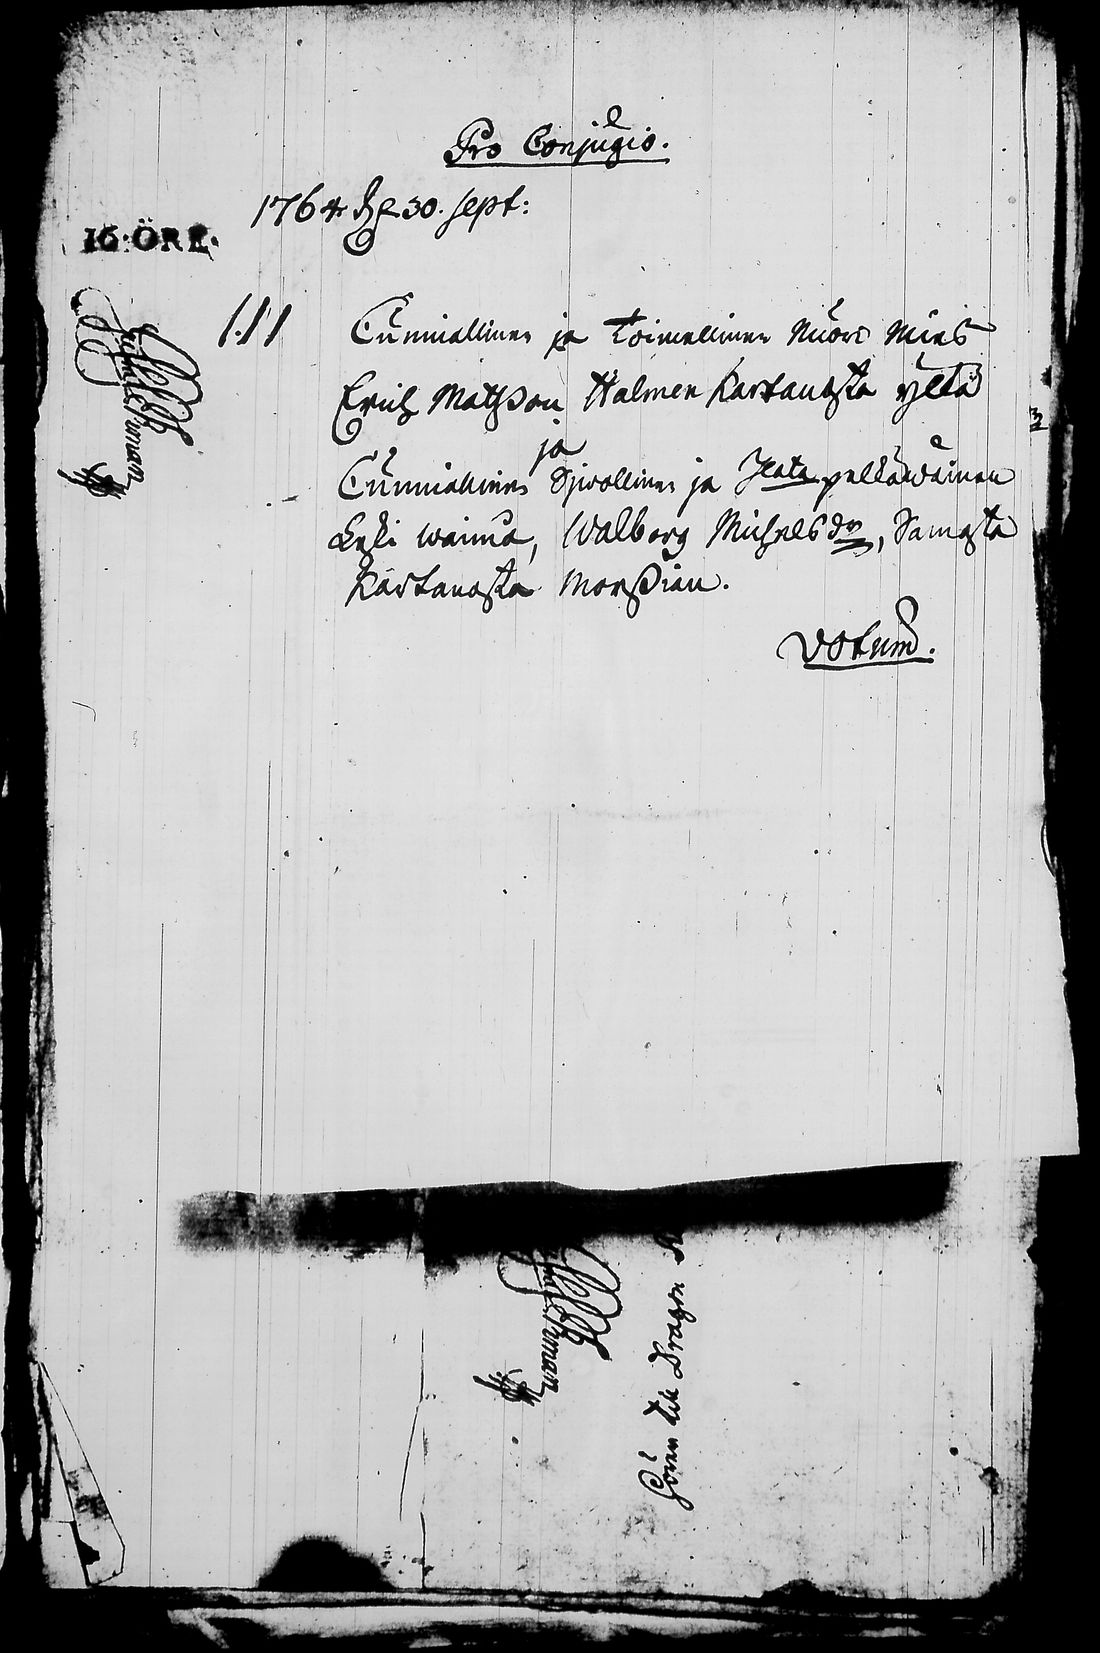 Pro Conjugio.
1764 d. 30. Sept:
16. ÖRE.
1. 11
Cunnialinen ja Toimellinen Nuori Mies
Erich Matsson Halmen Kartanosta yltä
ja
Cunnialinen Sivollinen ja Jlata pelkäwäinen
Leski waimo, Walborg Michelsdr, Samasta
Kartanosta Morsian.
Votum.
Sonen till Dragon